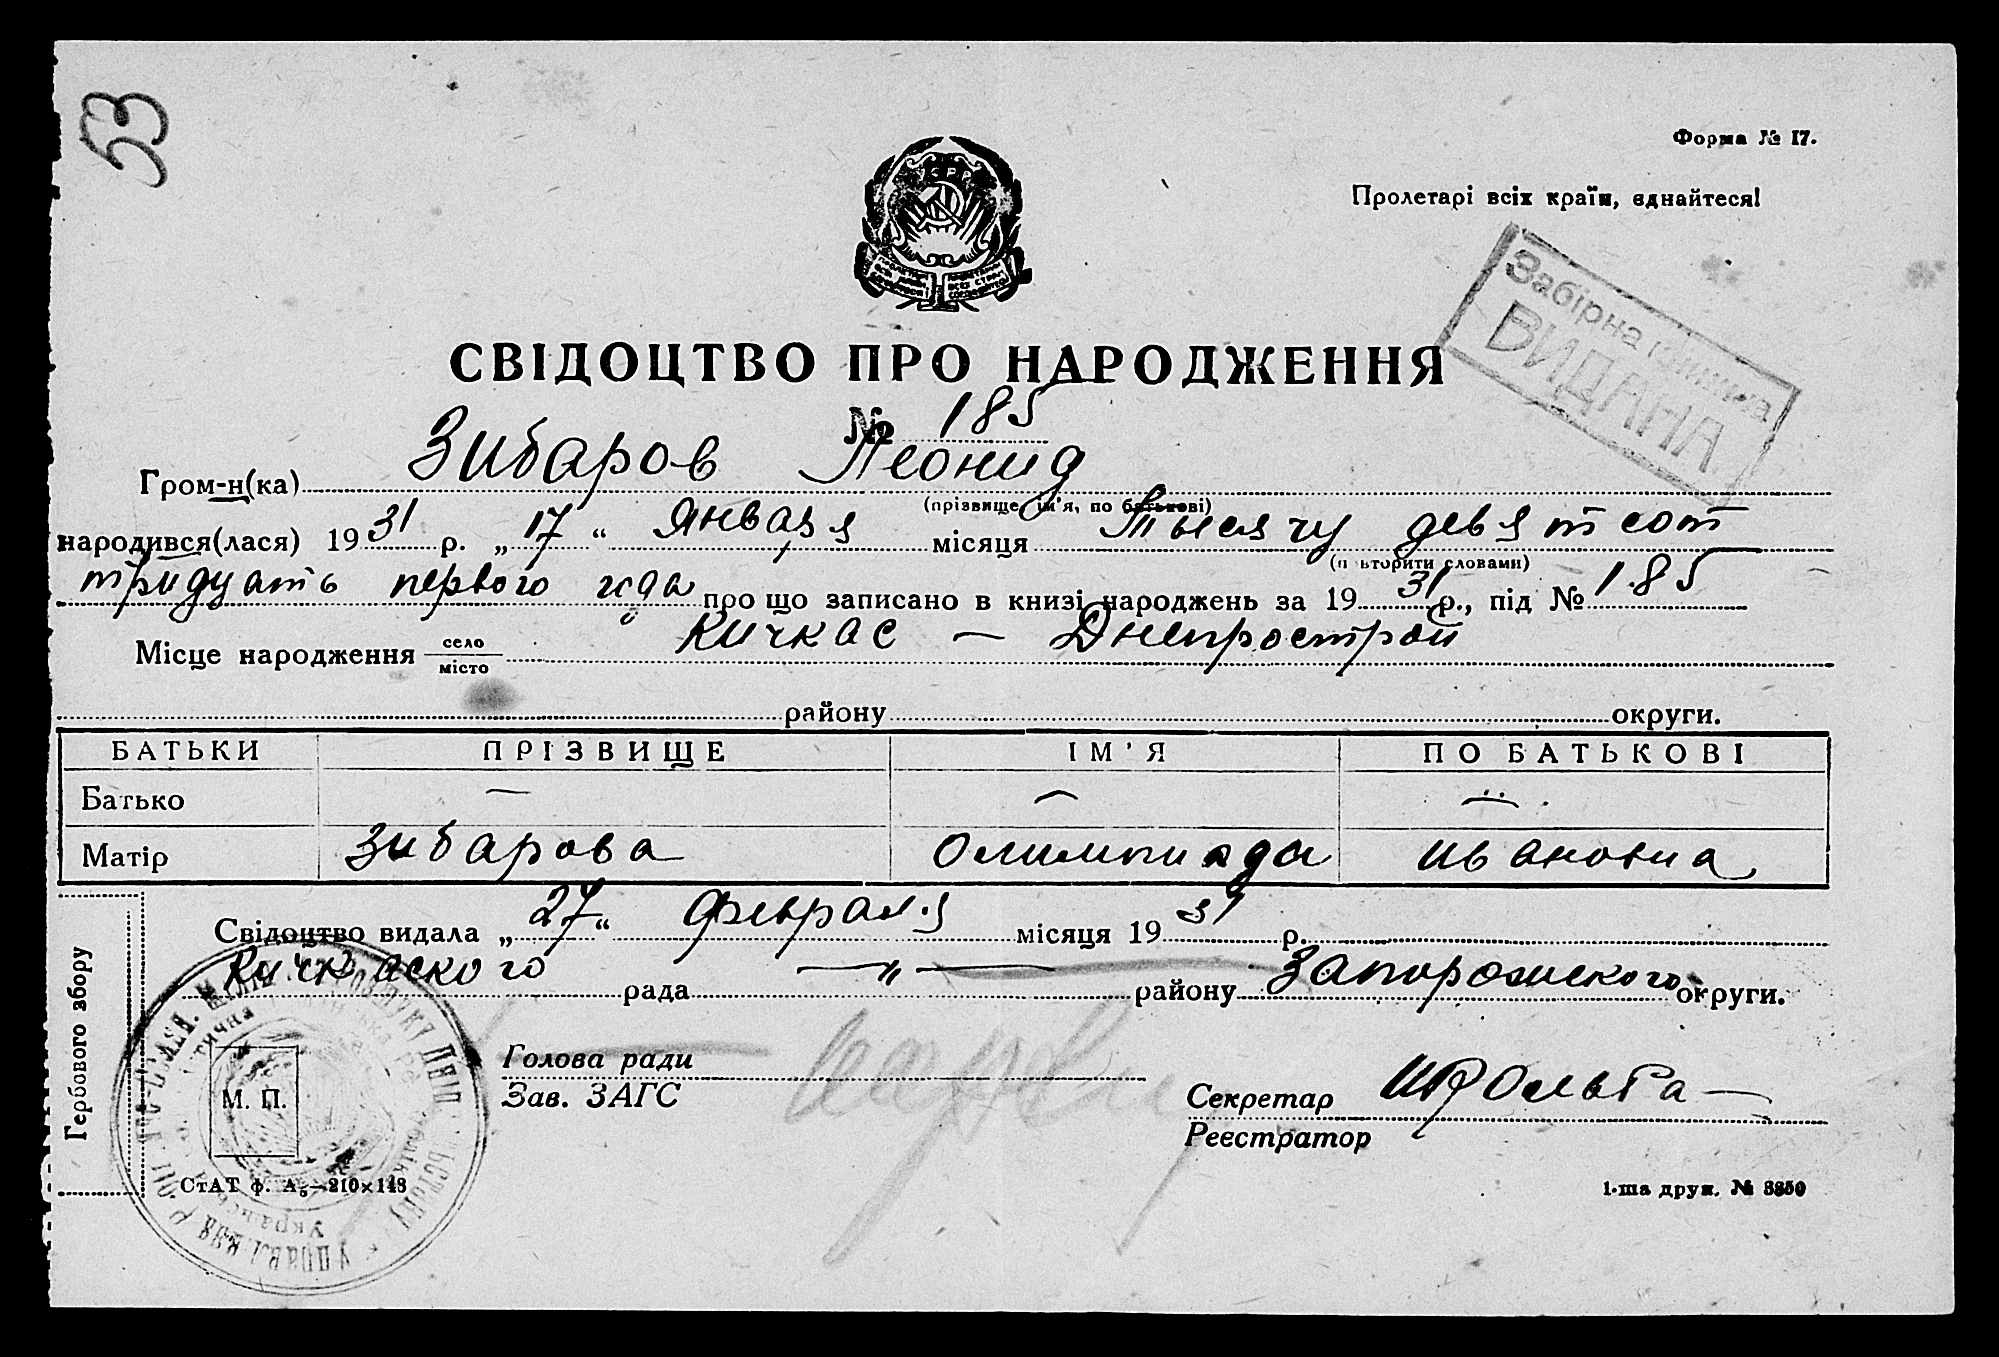 53
Форма № 17.
Пролетарі всіх країн, єднайтеся!
Забірна книжка
ВИДАНА
СВІДОЦТВО ПРО НАРОДЖЕННЯ
№ 185
Гром-н(ка) Зибаров Леонид
(прізвище, ім'я, по батькові)
народився(лася) 1931 р. „17“ Января місяця Тысячу девятсот
(повторити словами)
тридцать первого года про що записано в книзі народжень за 1931 р., під № 185
Місце народження село місто Кичкас — Днепрострой
району округи.
БАТЬКИ ПРІЗВИЩЕ ІМ'Я ПО БАТЬКОВІ
Батько — — —
Матір Зибарова Олимпиада Ивановна
Свідоцтво видала „27“ февраля місяця 1931 р.
Кичкаского рада —„— району Запорожского округи.
Гербового збору
М. П.
Голова ради
Зав. ЗАГС
Секретар
Реєстратор
СтАТ ф. А5—210×148
1-ша друк. № 3350